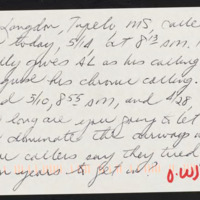 Langdon, Tupelo MS, calle
today, 5/12, at 8:13 am.
ly gives SL as his calling
guise his chronic calling.
d 5/10, 8:55 am, and 4/28,
Long are you going to let
dominate the airwaves w
e callers say they tried
n years to get in?